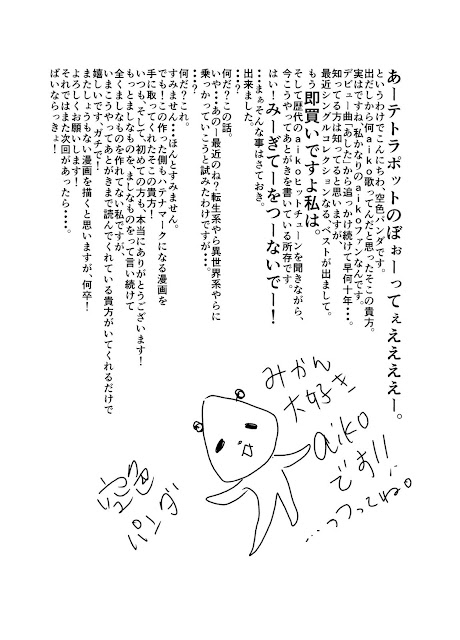 あーテトラポットのぼぉーってぇええええー。
というわけでこんにちわ、空色パンダです。
出だしから何aiko歌ってんだと思ったそこの貴方。
実はですね、私かなりのaikoファンなんです。
デビュー曲「あした」から追っかけ続けて早何十年・・・。
知ってる方は知ってると思いますが、
最近シングルコレクションなる、ベストが出まして。
もう即買いですよ私は。
そして歴代のaikoヒットチューンを聞きながら、
今こうやってあとがきを書いている所存です。
はい！みーぎてーをつーないでー！
・・・まぁそんな事はさておき。
出来ました。
・・・？
何だ？この話。
いや・・・あのー最近のね？転生系やら異世界系やらに
乗っかっていこうと試みたわけですが・・・。
・・・？
何だ？これ。
すみません・・・ほんとすみません。
でも！この作った側もハテナマークになる漫画を
手に取ってくれたそこの貴方！
いつも、そして、初めての方も、本当にありがとうございます！
もっとましなものを、ましなものをって言い続けて
全くましなものを作れてない私ですが、
いまこうやってあとがきまで読んでくれている貴方がいてくれるだけで
嬉しいです、ガチで！
またしょうもない漫画を描くと思いますが、何卒！
よろしくお願いします！
それではまた次回があったら・・・。
ばいならっきょ！
みかん
大好き
aiko
です!!
…つってね。
空色
パンダ